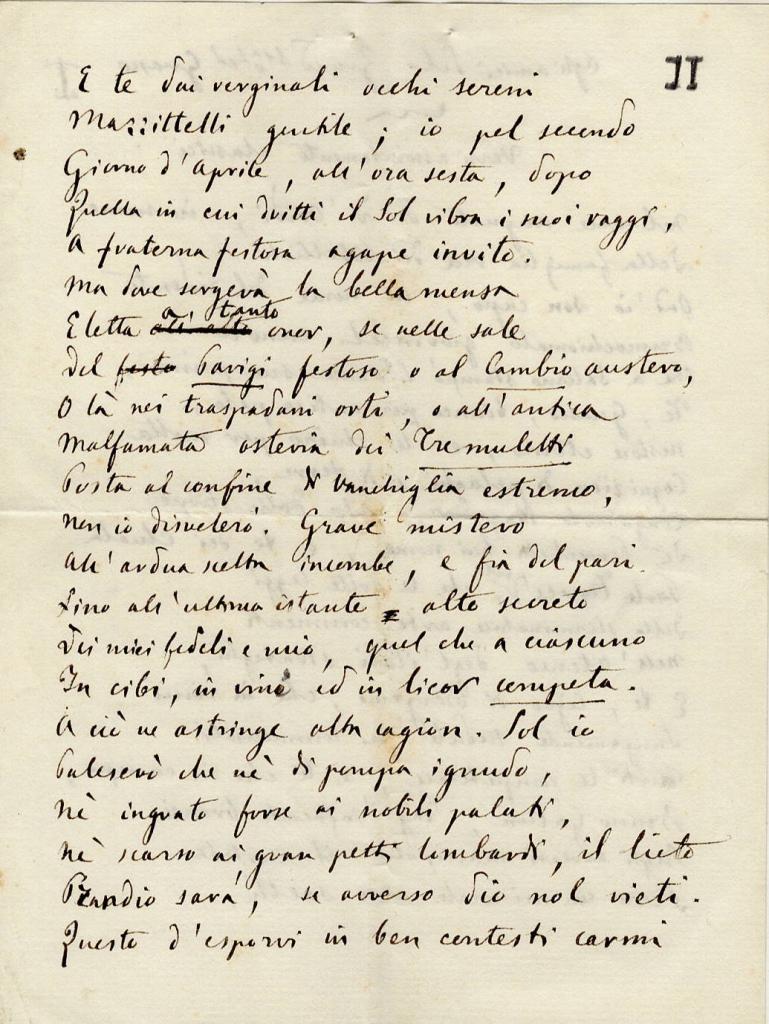 II
E te dai verginali occhi sereni
Mazzittelli gentile; io pel secondo
Giorno d'Aprile, all'ora sesta, dopo
Quella in cui dritti il Sol vibra i suoi raggi,
A fraterna festosa agape invito.
Ma dove sorgerà la bella mensa
a tanto
Eletta onor, se nelle sale
Del festo Parigi festoso o al Cambio austero,
O là nei traspadani orti, o all'antica
Malfamata osteria dei Tre muletti
Posta al confine di Vanchiglia estremo,
Non io disvelerò. Grave mistero
All'ardua scelta incombe, e fia del pari
Fino all'ultimo istante alto secreto
Dei miei fedeli e mio, quel che a ciascuno
In cibi, in vino ed in licor competa.
A ciò ne astringe alta cagion. Sol io
Paleserò che nè di pompa ignudo,
Nè ingrato forse ai nobili palati,
Nè scarso ai gran petti lombardi, il lieto
Prandio sarà, se avverso dio nol vieti.
Questo d'esporvi in ben contesti carmi